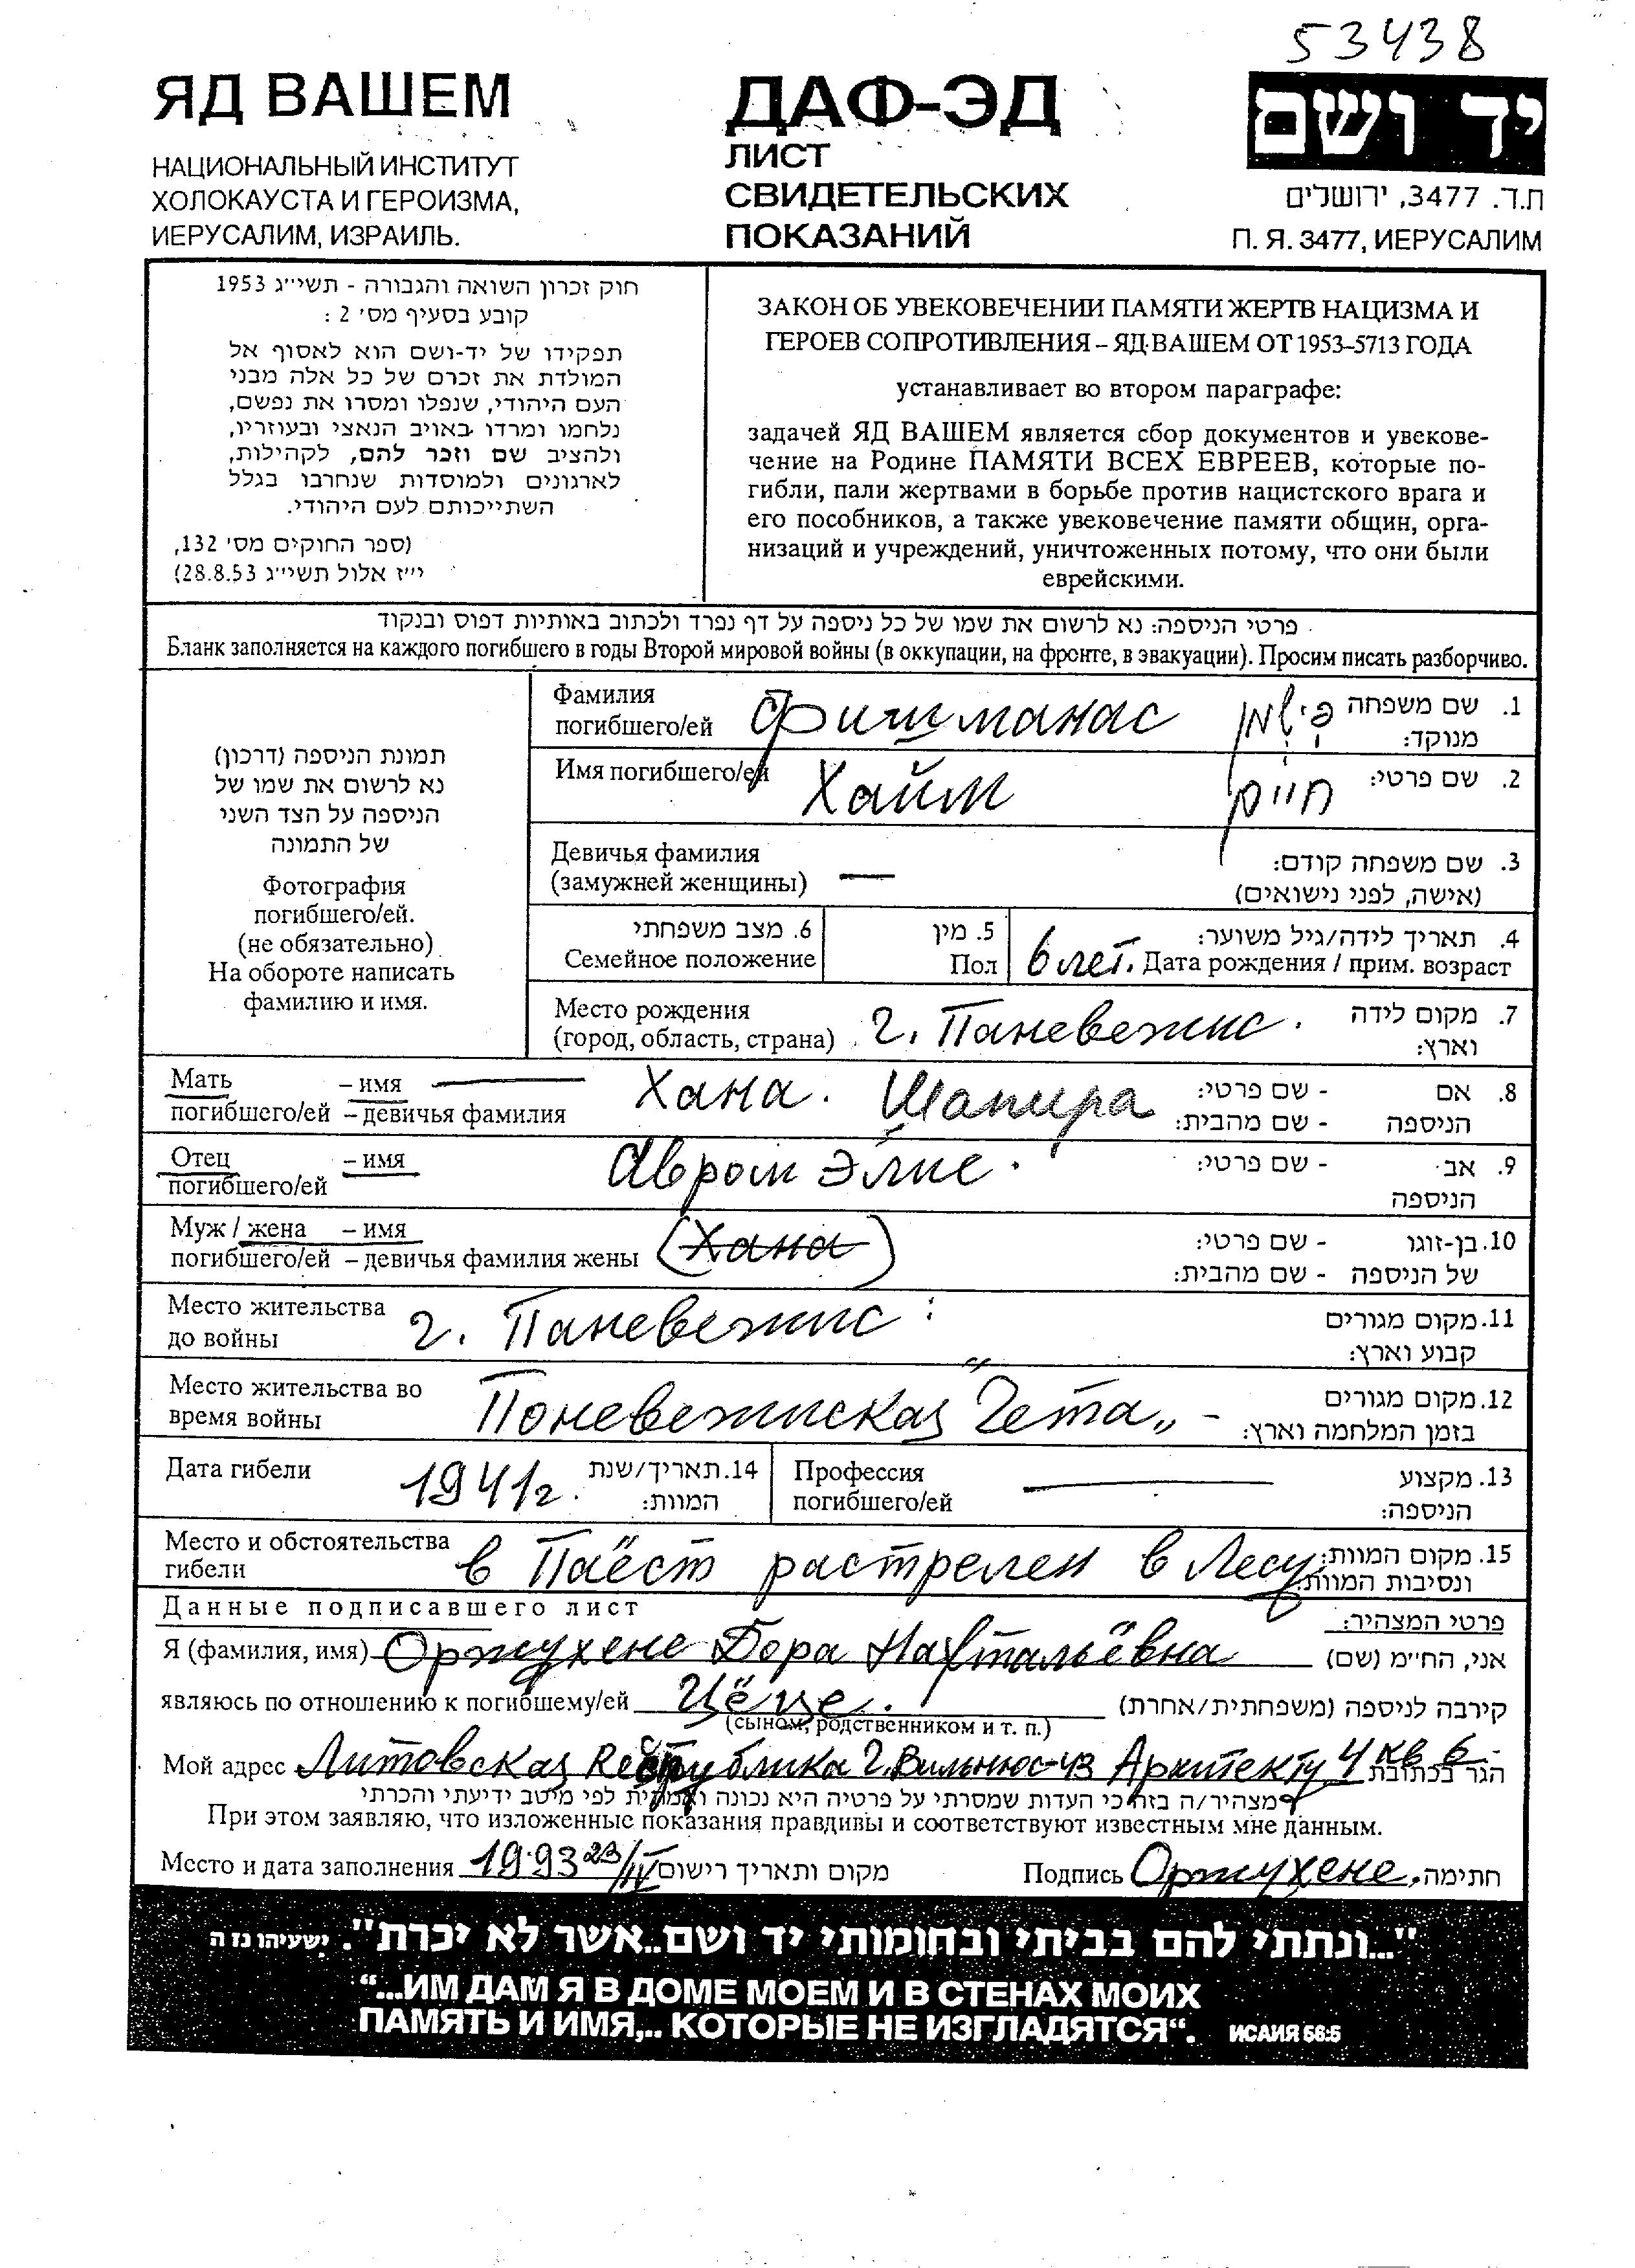 53438
ЯД ВАШЕМ
НАЦИОНАЛЬНЫЙ ИНСТИТУТ
ХОЛОКАУСТА И ГЕРОИЗМА,
ИЕРУСАЛИМ, ИЗРАИЛЬ.
ДАФ-ЭД
ЛИСТ
СВИДЕТЕЛЬСКИХ
ПОКАЗАНИЙ
יד ושם
ת.ד. 3477, ירושלים
П. Я. 3477, ИЕРУСАЛИМ
חוק זכרון השואה והגבורה - תשי״ג 1953
קובע בסעיף מס׳ 2 :
תפקידו של יד-ושם הוא לאסוף אל
המולדת את זכרם של כל אלה מבני
העם היהודי, שנפלו ומסרו את נפשם,
נלחמו ומרדו באויב הנאצי ובעוזריו,
ולהציב שם וזכר להם, לקהילות,
לארגונים ולמוסדות שנחרבו בגלל
השתייכותם לעם היהודי.
(ספר החוקים מס׳ 132,
י״ז אלול תשי״ג 28.8.53)
ЗАКОН ОБ УВЕКОВЕЧЕНИИ ПАМЯТИ ЖЕРТВ НАЦИЗМА И
ГЕРОЕВ СОПРОТИВЛЕНИЯ – ЯД ВАШЕМ ОТ 1953–5713 ГОДА
устанавливает во втором параграфе:
задачей ЯД ВАШЕМ является сбор документов и увекове-
чение на Родине ПАМЯТИ ВСЕХ ЕВРЕЕВ, которые по-
гибли, пали жертвами в борьбе против нацистского врага и
его пособников, а также увековечение памяти общин, орга-
низаций и учреждений, уничтоженных потому, что они были
еврейскими.
פרטי הניספה: נא לרשום את שמו של כל ניספה על דף נפרד ולכתוב באותיות דפוס ובנקוד
Бланк заполняется на каждого погибшего в годы Второй мировой войны (в оккупации, на фронте, в эвакуации). Просим писать разборчиво.
תמונת הניספה (דרכון)
נא לרשום את שמו של
הניספה על הצד השני
של התמונה
Фотография
погибшего/ей.
(не обязательно)
На обороте написать
фамилию и имя.
Фамилия
погибшего/ей Фишманас פישמן 1. שם משפחה
מנוקד:
Имя погибшего/ей Хайм חיים 2. שם פרטי:
Девичья фамилия
(замужней женщины) — 3. שם משפחה קודם:
(אישה, לפני נישואים)
6. מצב משפחתי
Семейное положение
5. מין
Пол
4. תאריך לידה/גיל משוער:
6 лет. Дата рождения / прим. возраст
Место рождения
(город, область, страна) г. Паневежис. 7. מקום לידה
וארץ:
Мать – имя Хана. Шапира 8. אם - שם פרטי:
погибшего/ей – девичья фамилия הניספה - שם מהבית:
Отец – имя Авром Элие. 9. אב - שם פרטי:
погибшего/ей הניספה
Муж / жена – имя (Хана) 10. בן-זוגו - שם פרטי:
погибшего/ей – девичья фамилия жены של הניספה - שם מהבית:
Место жительства
до войны г. Паневежис 11. מקום מגורים
קבוע וארץ:
Место жительства во
время войны Поневежиская "Гета" - 12. מקום מגורים
בזמן המלחמה וארץ:
Дата гибели 1941г. 14. תאריך/שנת
המוות:
Профессия
погибшего/ей — 13. מקצוע
הניספה:
Место и обстоятельства
гибели в Паёст растрелен в Лесу 15. מקום המוות:
ונסיבות המוות:
Данные подписавшего лист פרטי המצהיר:
Я (фамилия, имя) Оржухене Дора Нафтальёвна אני, הח״מ (שם)
являюсь по отношению к погибшему/ей Цёце. קירבה לניספה (משפחתית/אחרת)
(сыном, родственником и т. п.)
Мой адрес Литовская Республика г. Вильнюс-43 Архитекту 4 кв 6 הגר בכתובת
מצהיר/ה בזה כי העדות שמסרתי על פרטיה היא נכונה ואמתית לפי מיטב ידיעתי והכרתי
При этом заявляю, что изложенные показания правдивы и соответствуют известным мне данным.
Место и дата заполнения 1993 23/IV מקום ותאריך רישום Подпись Оржухене. חתימה
"...ונתתי להם בביתי ובחומותי יד ושם..אשר לא יכרת". ישעיהו נז ה
“...ИМ ДАМ Я В ДОМЕ МОЕМ И В СТЕНАХ МОИХ
ПАМЯТЬ И ИМЯ,.. КОТОРЫЕ НЕ ИЗГЛАДЯТСЯ“. ИСАИЯ 56:5